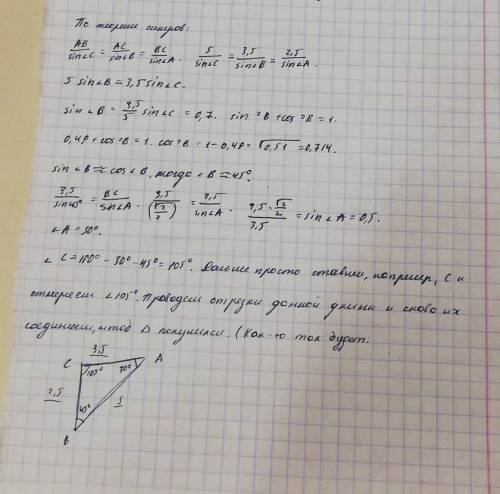 По теореме синусов:
AB/sin∠C = AC/sin∠B = BC/sin∠A. 5/sin∠C = 3,5/sin∠B = 2,5/sin∠A.
5 sin∠B = 3,5 sin∠C.
sin∠B = 3,5/5 sin∠C = 0,7. sin²B + cos²B = 1.
0,49 + cos²B = 1. cos²B = 1 - 0,49 = √0,51 = 0,714.
sin∠B ≈ cos∠B, тогда ∠B ≈ 45°.
3,5/sin45° = BC/sin∠A. 3,5/(√2/2) = 2,5/sin∠A. 2,5·√2/2 / 3,5 = sin∠A = 0,5.
∠A = 30°.
∠C = 180° - 30° - 45° = 105°. Дальше просто ставим, например, C и
отмеряем ∠105°. Проводим отрезки данной длины и снова их
соединяем, чтоб Δ получился. (Как-то так будет:
3,5
C 105° 30° A
2,5 45° 5
B